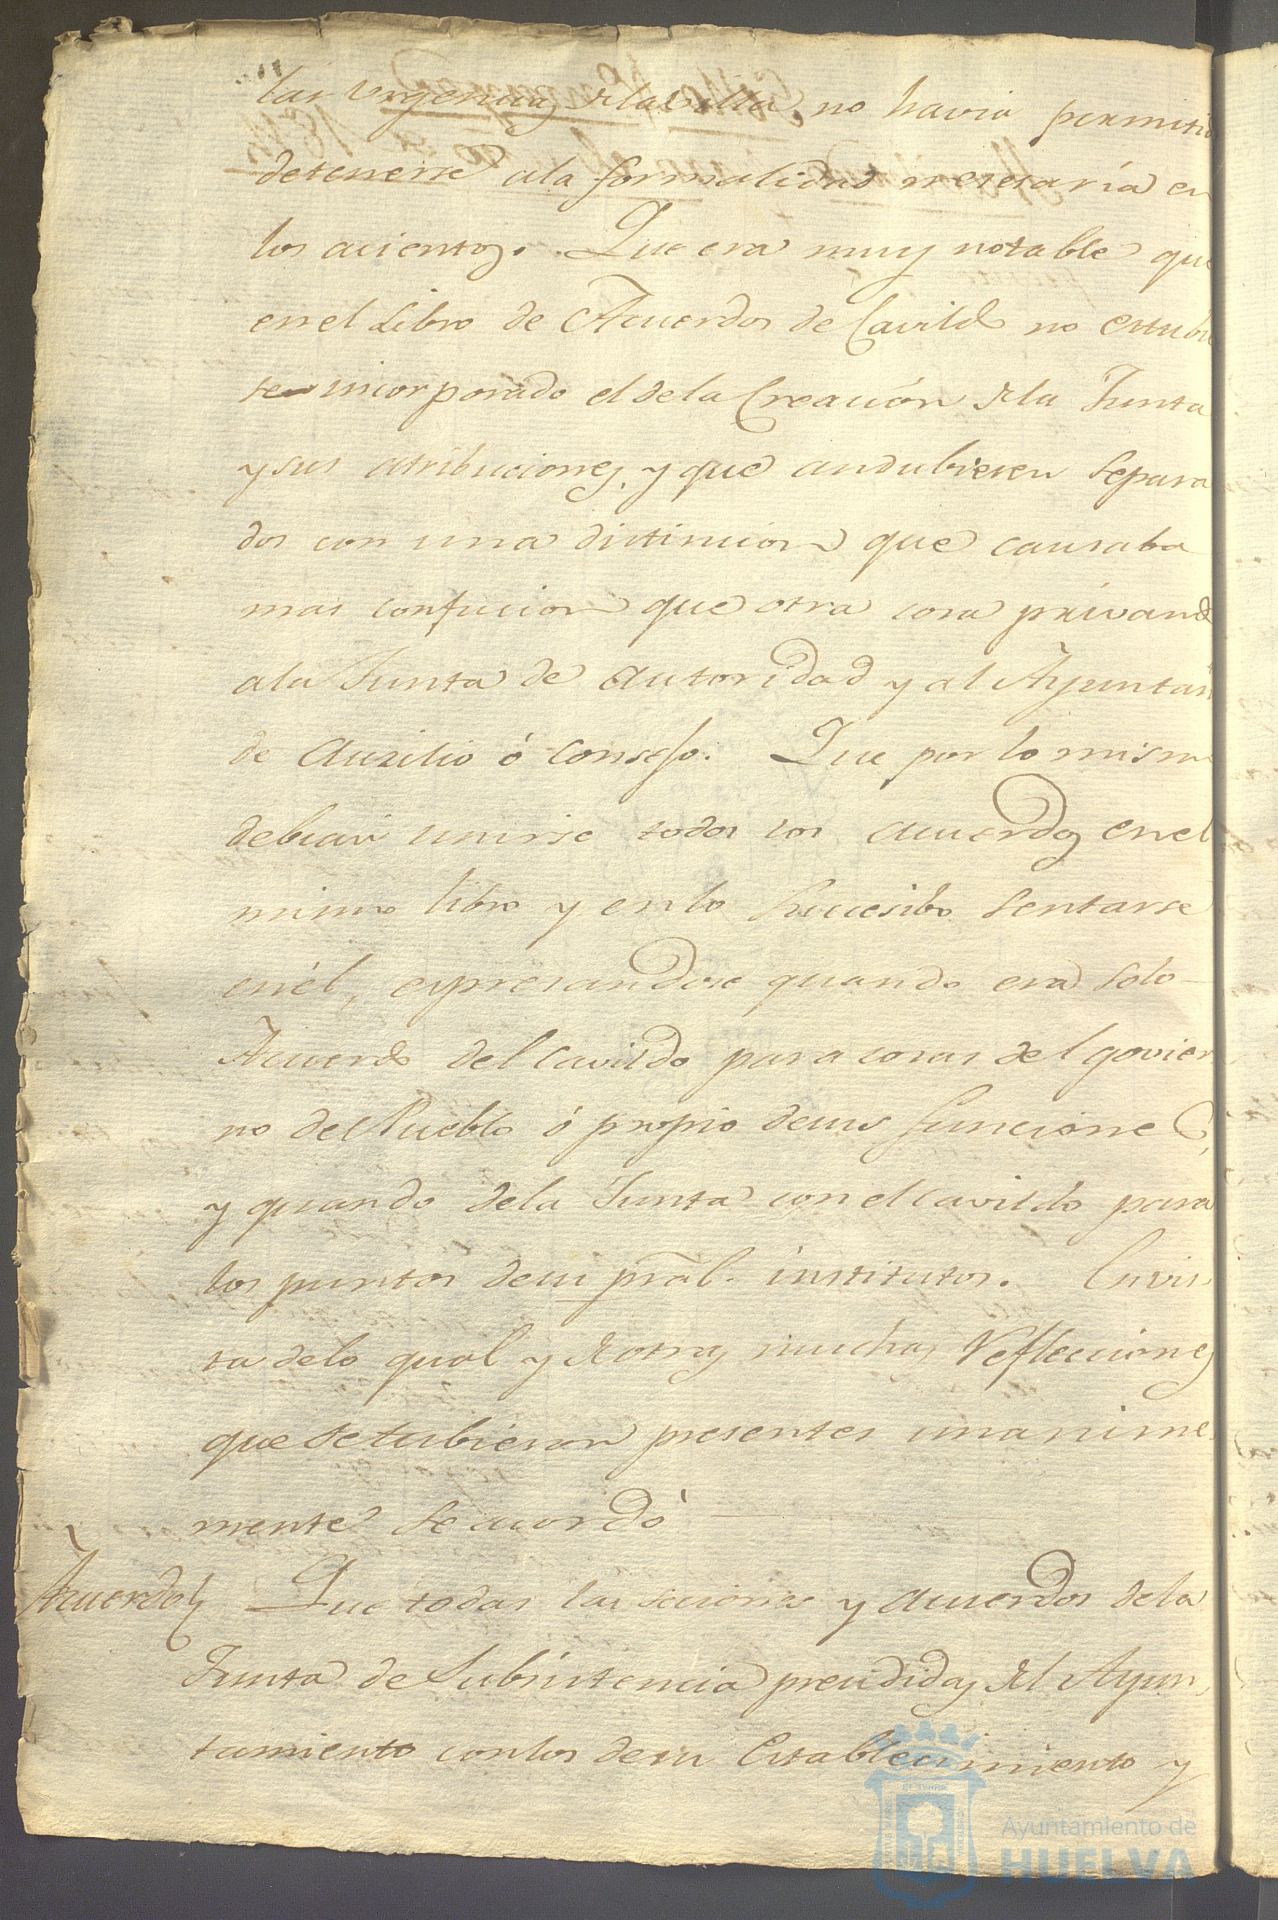 las urgencias de la villa, no havia permitido
detenerse ala formalidad necesaria en
los acientos. Que era muy notable que
en el Libro de Acuerdos de Cavildo no estubie
se incorporado el dela Creación de la Junta
y sus atribuciones, y que andubiesen separa
dos con una distincion que causaba
mas confucion que otra cosa privando
ala Junta de autoridad y al Ayuntam
de auxilio ó consejo. Que por lo mismo
debian unirse todos los acuerdos en el
mismo libro y en lo succesibo sentarse
en él, expresandose quando era solo
Acuerdo del cavildo para cosas del govier
no del Pueblo ó propio desus funciones,
y quando dela Junta con el cavildo para
los puntos desu pral. institutos. En vis
ta delo qual y de otras muchas Reflecciones
que se tubieron presentes unanime
mente se acordó
Acuerdo Que todas las seciones y acuerdos dela
Junta de Subsistencia presididas del Ayun
tamiento con los desu Establecimiento y
Ayuntamiento de
HUELVA